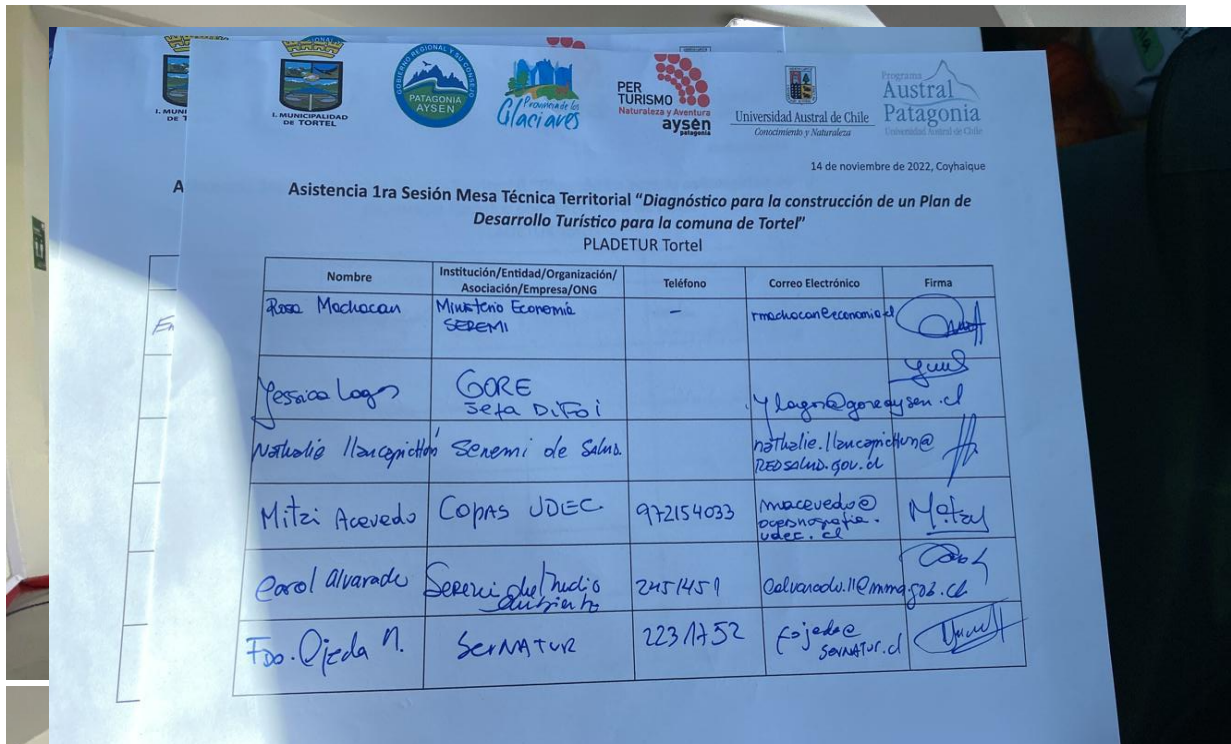 I. MUNICIPALIDAD
DE TORTEL
GOBIERNO REGIONAL Y SU CONSEJO
PATAGONIA
AYSEN
Provincia de los
Glaciares
PER
TURISMO
Naturaleza y Aventura
aysén
patagonia
Universidad Austral de Chile
Conocimiento y Naturaleza
Programa
Austral
Patagonia
Universidad Austral de Chile
14 de noviembre de 2022, Coyhaique
Asistencia 1ra Sesión Mesa Técnica Territorial "Diagnóstico para la construcción de un Plan de
Desarrollo Turístico para la comuna de Tortel"
PLADETUR Tortel
Nombre
Institución/Entidad/Organización/
Asociación/Empresa/ONG
Teléfono
Correo Electrónico
Firma
Rosa Machacan
Ministerio Economía
SEREMI
-
rmachacan@economia.cl
Yessica Lagos
GORE
Jefa DiFoi
ylagos@goreaysen.cl
Nathalie Llancapichún
Seremi de Salud.
nathalie.llancapichun@
REDSALUD.gov.cl
Mitzi Acevedo
COPAS UDEC
972154033
macevedo@
oceanografia.
udec.cl
Carol Alvarado
Seremi del Medio
Ambiente
2451451
calvarado.11@mma.gob.cl
Fdo. Ojeda M.
SerNATUR
2231752
fojeda@
SERNATUR.cl